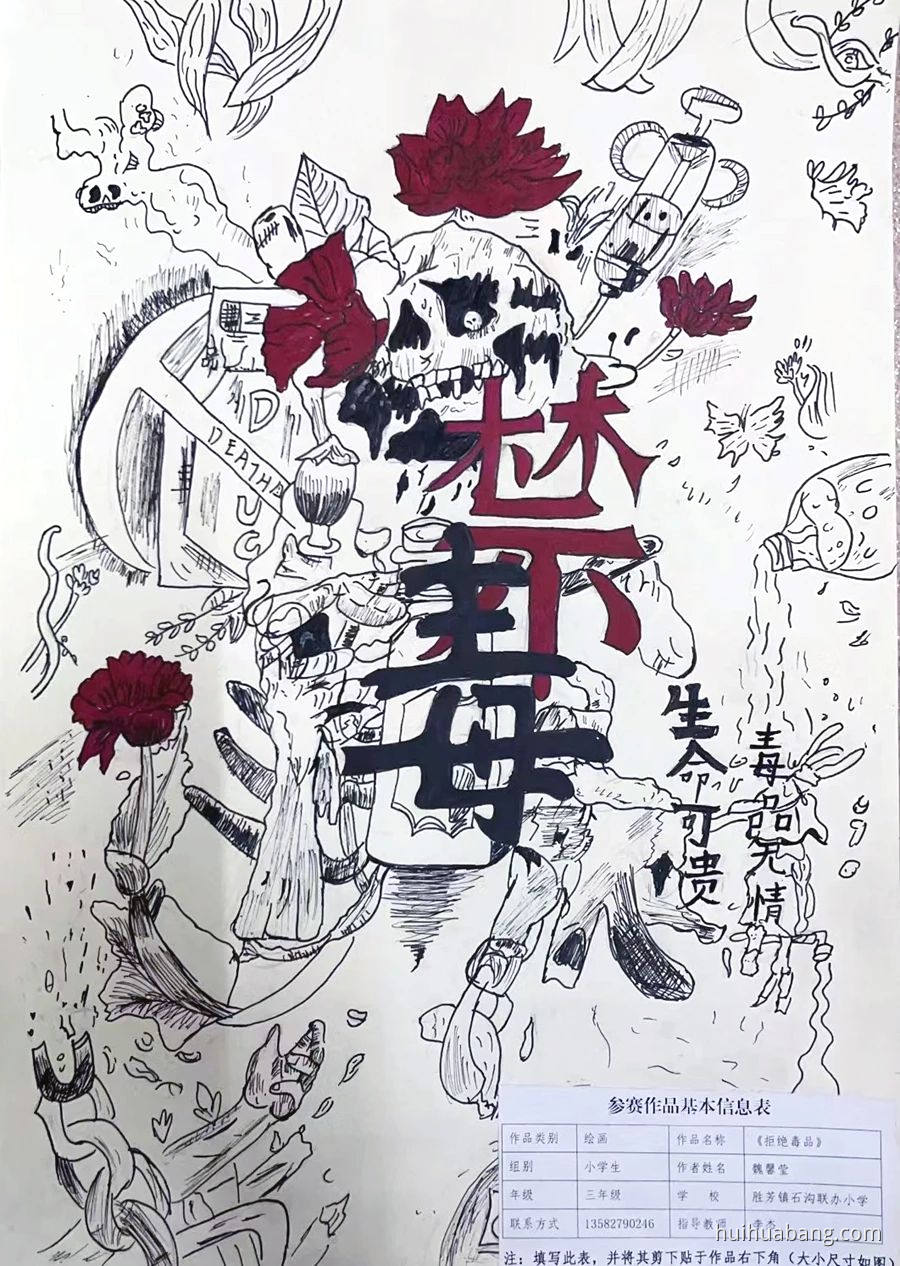 禁
毒
D
DEATHA
UG
生命可贵
毒品无情
参赛作品基本信息表
作品类别 绘画 作品名称 《拒绝毒品》
组别 小学生 作者姓名 魏馨莹
年级 三年级 学 校 胜芳镇石沟联办小学
联系方式 13582790246 指导教师 李杰
注：填写此表，并将其剪下贴于作品右下角（大小尺寸如图）
huihuabang.com